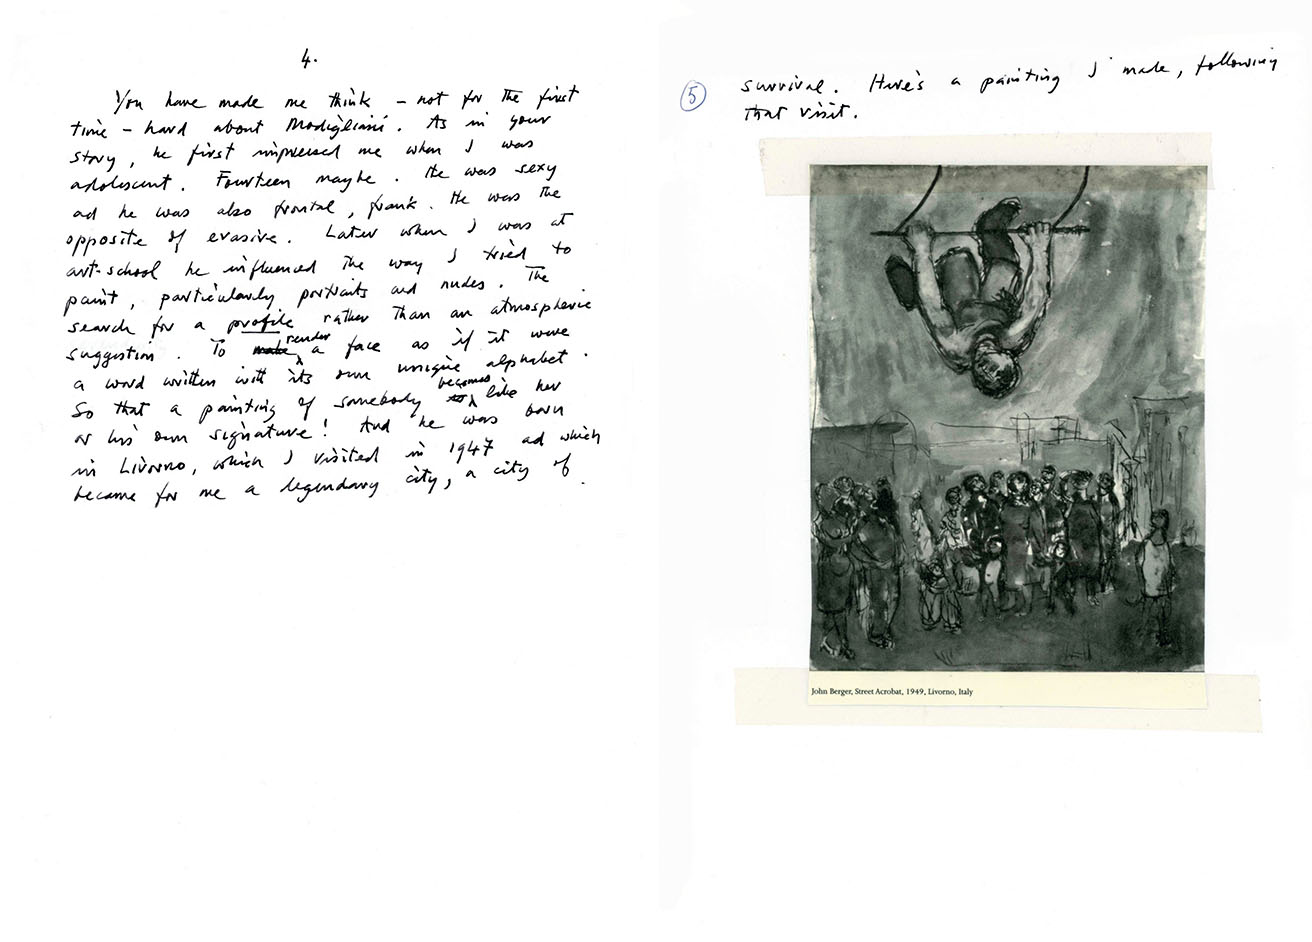 4.
You have made me think – not for the first
time – hard about Modigliani. As in your
story, he first impressed me when I was
adolescent. Fourteen maybe. He was sexy
ad he was also frontal, frank. He was the
opposite of evasive. Later when I was at
art-school he influenced the way I tried to
paint, particularly portraits and nudes. The
search for a profile rather than an atmospheric
suggestion. To make render a face as if it were
a word written with its own unique alphabet.
So that a painting of somebody becomes like her
or his own signature! And he was born
in Livorno, which I visited in 1947 ad which
became for me a legendary city, a city of
5 survival. Here's a painting I made, following
that visit.
John Berger, Street Acrobat, 1949, Livorno, Italy